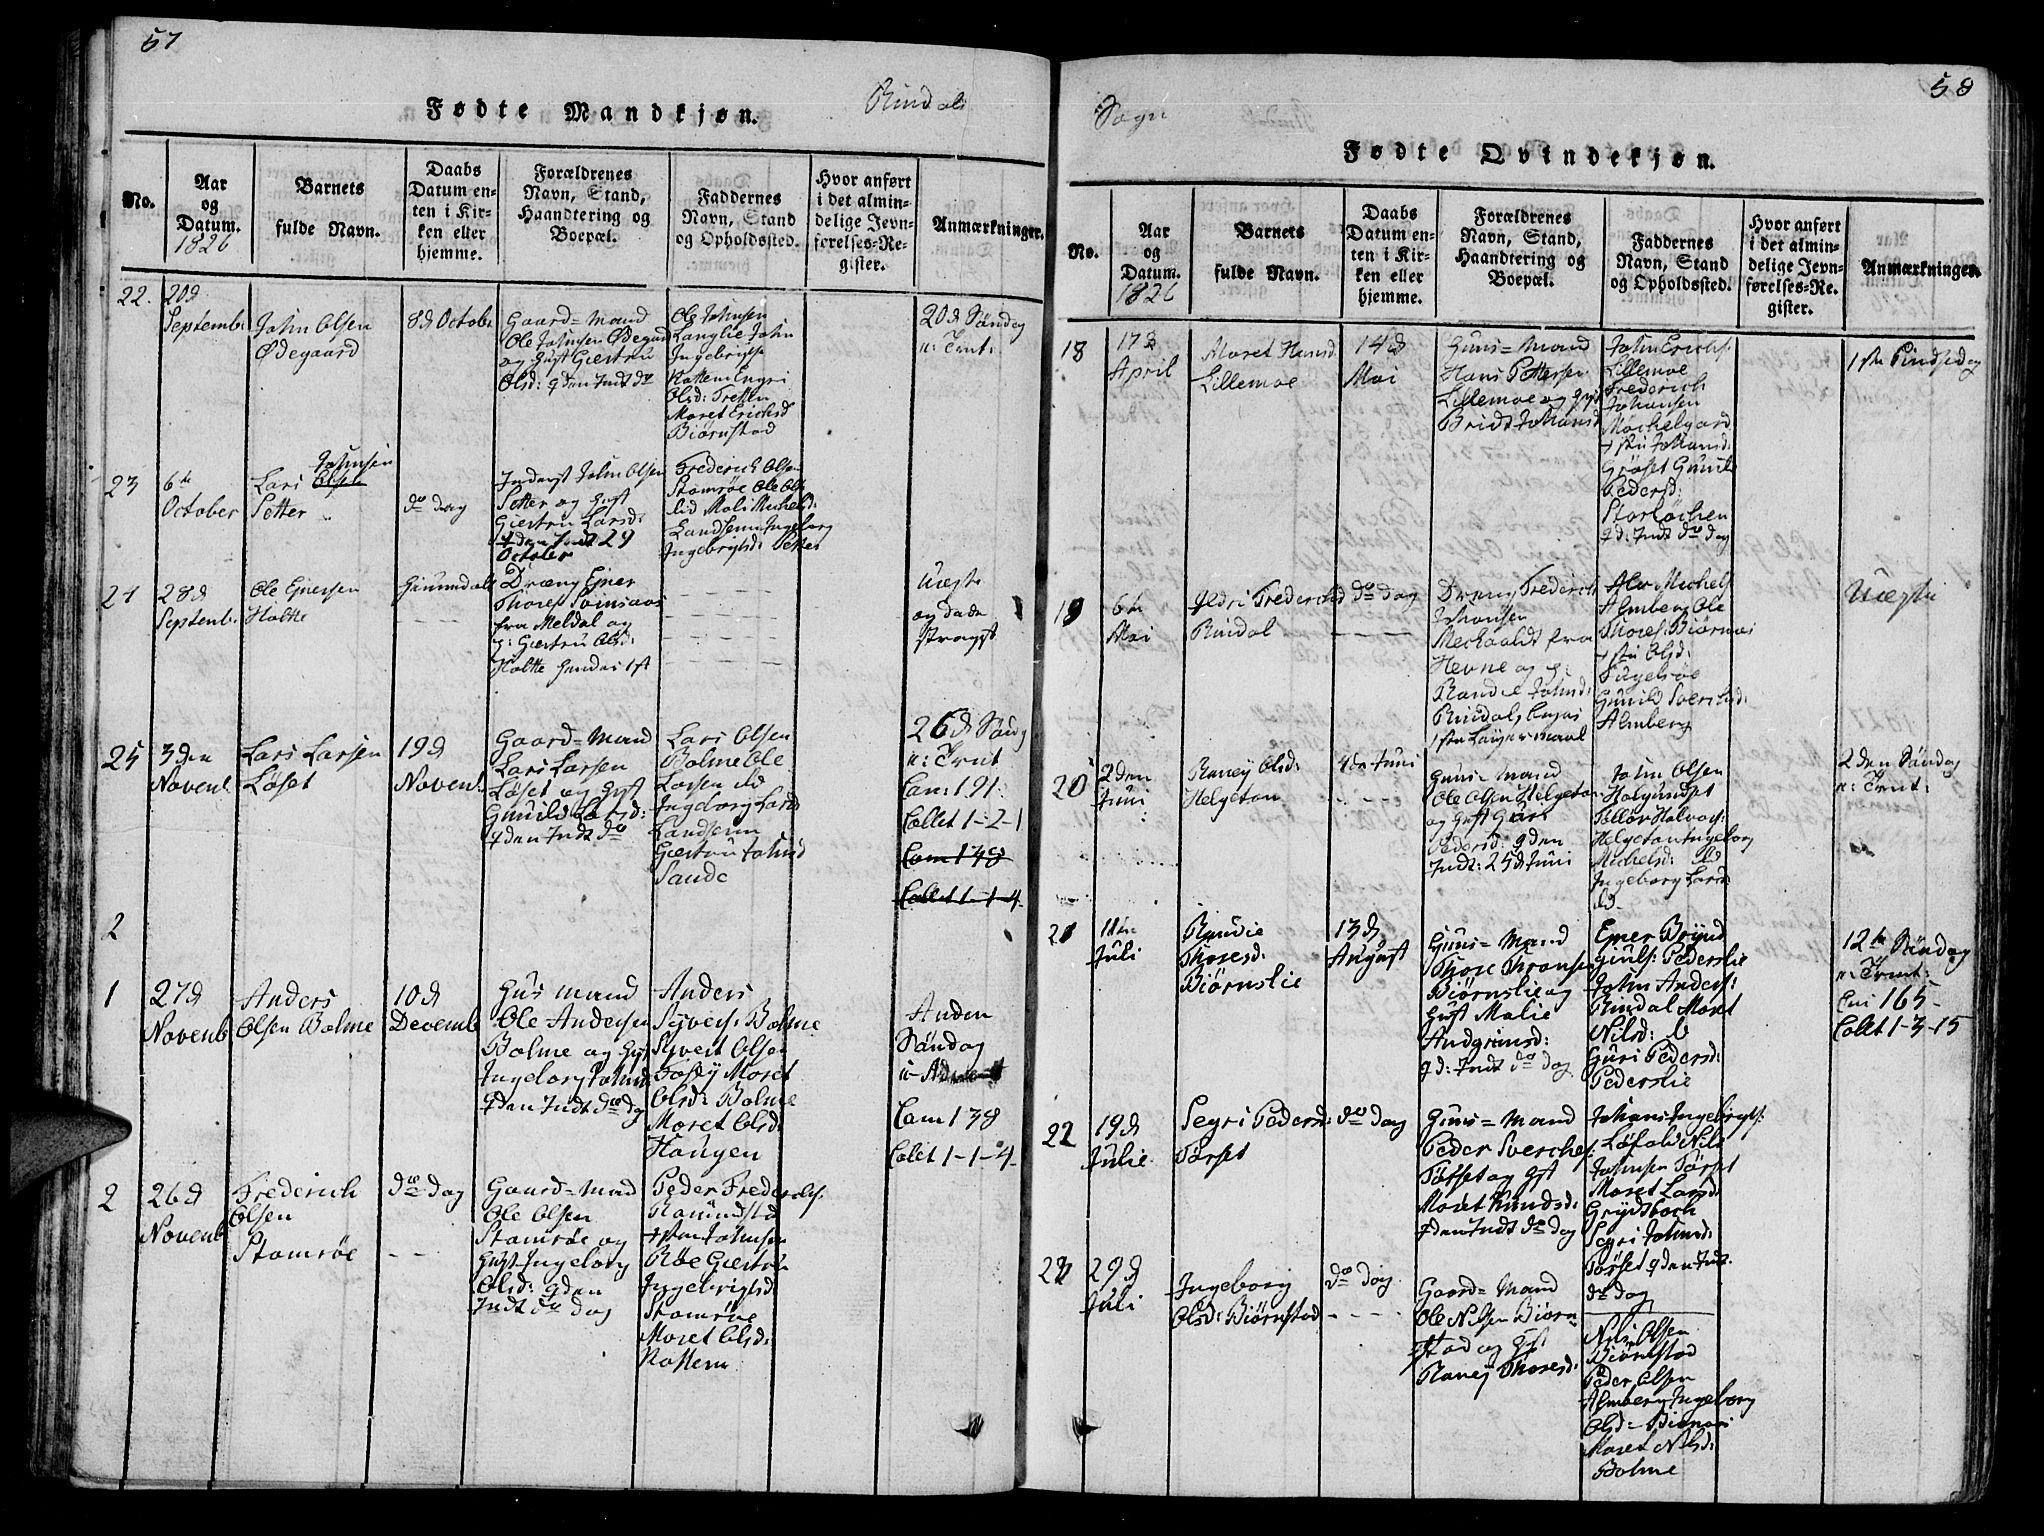 57
Fødte Mandkjøn.
Rindals
No.
Aar
og
Datum.
1826
Barnets
fulde Navn.
Daabs
Datum en-
ten i Kir-
ken eller
hjemme.
Forældrenes
Navn, Stand,
Haandtering og
Boepæl.
Faddernes
Navn, Stand
og Opholdssted.
Hvor anført
i det almin-
delige Jevn-
førelses-Re-
gister.
Anmærkninger.
22.
20d
Septembr
John Olsen
Ødegaard
8d October
Gaard=Mand
Ole Johnsen Ødegaard
og Hust Giertru
Olsd:
Ole Johnsen
Langlie John
Ingebrigts
Rottem Engri
Olsd: Tretten
Moret Erichsd
Biørnstad
20d Søndag
n: Trnt:
23
6te
October
Johnsen
Lars Olsen
Setter
do dag
Inderst John Olsen
Setter og Hust
Giertru Larsd:
29
October
Frederich Olsen
Stomrøe Ole Ols
lid Mali Michelsd:
Landsem Ingeborg
Ingebrigtsd: Setter
24
28d
Septemb.
Ole Enersen
Holtte
Dræng Ener
Thores Svinsaas
fra Meldal og
p: Giertru Olsd:
Holtte hendes 1st
Uægte
og døde
strragst
25
3den
Novemb.
Lars Larsen
Løset
19d
Novemb.
Gaard=Mand
Lars Larsen
Løset og Hust
Gunild Larsd:
Lars Olsen
Bolme Ole
Larsen ibd
Ingeborg Larsd
Landsem
Giertru Johnsd
Sande
26d Sønd
n: Trnt
Com: 191.
Collet 1-2-1
Com 148
Collet 1-1-4
2
1
27d
Novemb
Anders
Olsen Bolme
10d
Decemb
Hus mand
Ole Andersen
Bolme og Hust
Ingeborg Johnsd
Anders
Syvers: Bolme
Syvert Olsen
Fosey Moret
Olsd: Bolme
Moret Olsd:
Haugen
Anden
Søndag
Com 138
Colet 1-1-4
2
26d
Novemb
Frederich
Olsen
Stomrøe
do dag
Gaard=Mand
Ole Olsen
Stomrøe og
Hust Ingeborg
Olsd: gden
Indt do dag
Peder Frederichs:
Romundstad
Johnsen
Røe Giertru
Ingebrigtsd
Stomrøe
Moret Olsd:
Rottem
58
Sogn
Fødte Qvindekjøn.
No.
Aar
og
Datum.
1826
Barnets
fulde Navn.
Daabs
Datum en-
ten i Kir-
ken eller
hjemme.
Forældrenes
Navn, Stand,
Haandtering og
Boepæl.
Faddernes
Navn, Stand
og Opholdssted.
Hvor anført
i det almin-
delige Jevn-
førelses-Re-
gister.
Anmærkninger.
18
17d
April
Moret Hansd
Lillemoe
14d
Mai
Huus=Mand
Hans Pettersen
Lillemoe og Hust
Bridt Johansd
John Erichs:
Lillemoe
Frederich
Johansen
Mochelgard
Johansd.
Grøset Gunild
Pedersd:
Storløchen
gd: Indt do dag
1ste Pindsedag
19
6te
Mai
Ildri Frederichsd
Rindal
do dag
Dræng Frederich
Johansen
fra
Hevne og p:
Randie Johnsd:
Rindal, begges
1ste Leiermaal
Michels
Almberg Ole
Thores: Biørnaas
Olsd:
Fugelsøe
Gunild Sverchsd:
Almberg
Uægte
20
2den
Juni
Raney Olsd:
Helgetun
4de Juni
Huus=Mand
Ole Olsen Helgetun
og Hust Guri
Pedersd: gden
Indt: 25d Juni
John Olsen
Halgundset
Peder Halvors:
Helgetun Ingeborg
Michelsd: ibd
Ingeborg Larsd
ibd.
2den Søndag
n: Trnt:
21
11te
Juli
Randie
Thoresd:
Biørnslie
13d
August
Huus=Mand
Thore Thronsen
Biørnslie og
Hust Malie
Andgrimsd:
gd: Indt do dag
Ener Brynd
giuls: Pederslie
John Anders:
Rindal Moret
Nilsd:
Guri Pedersd:
Pederslie
12te Søndag
n: Trnt:
Com 165-
Colet 1-3-15
22
19d
Julie
Segri Pedersd:
Tørset
do dag
Huus=Mand
Peder Sverches:
Tørset og Hst
Moret Knudsd:
gden Indt do dag
Johans Ingebrigts:
Løfald Nils
Johnsen Tørset
Moret Larsd:
Grytbach
Segri Johnsd:
Tørset gden Indt.
do dag
29d
Juli
Ingeborg
Olsd: Biørnstad
do dag
Gaard=Mand
Ole Nilsen Biørn
stad og Hst
Raney Thoresd:
Nils Olsen
Biørnstad
Peder Olsen
Almberg Ingeborg
Olsd=
Moret Nilsd:
Bolme